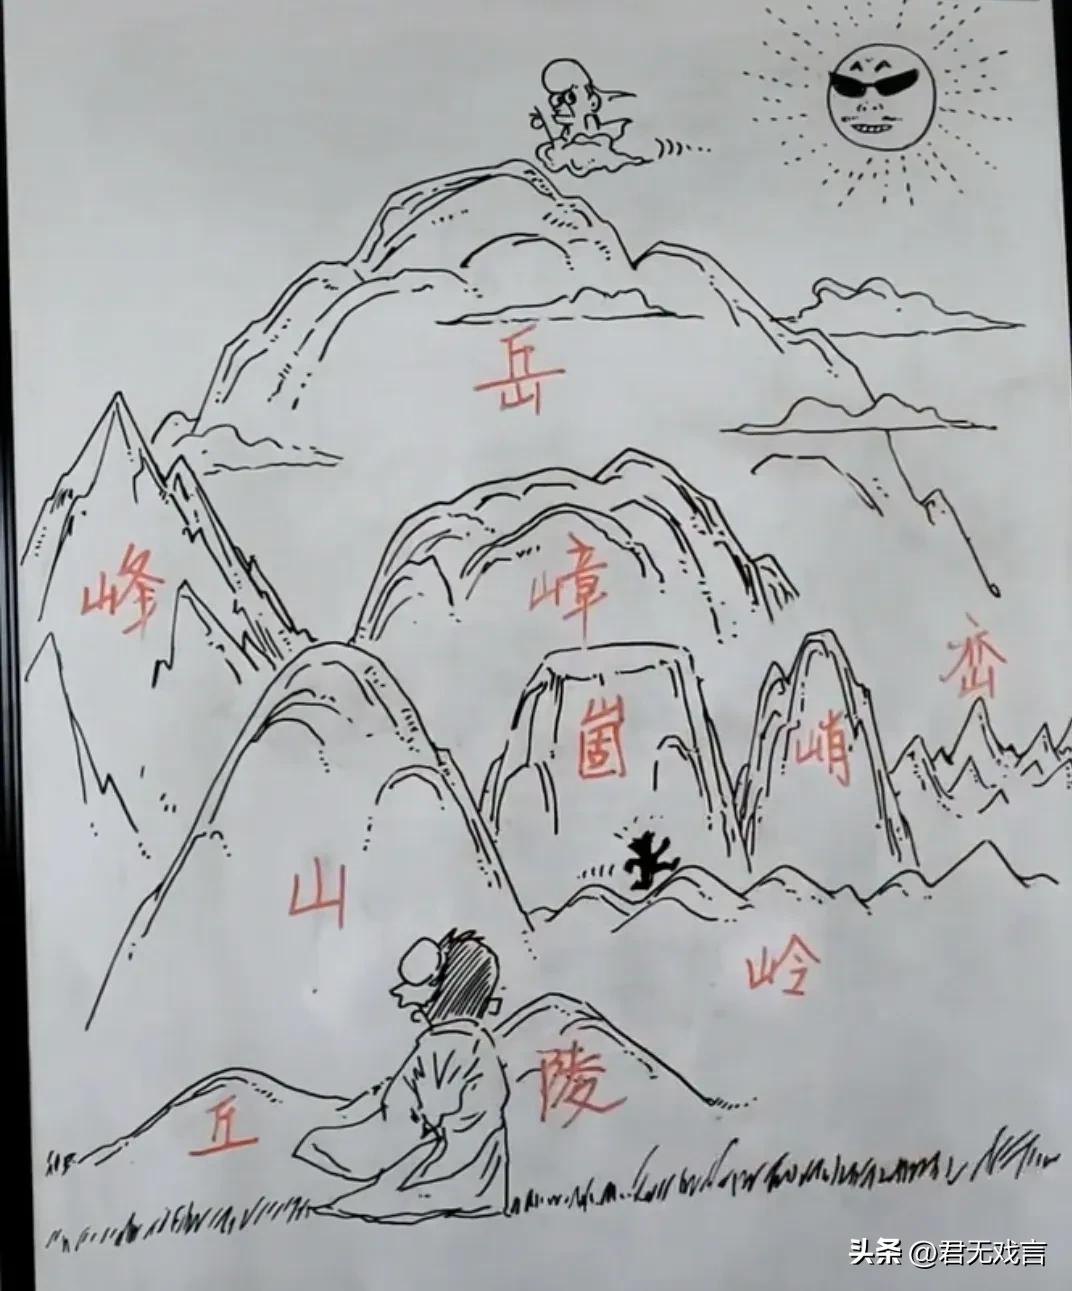 岳
峰
嶂
峦
崮
峭
山
岭
陵
丘
头条 @君无戏言